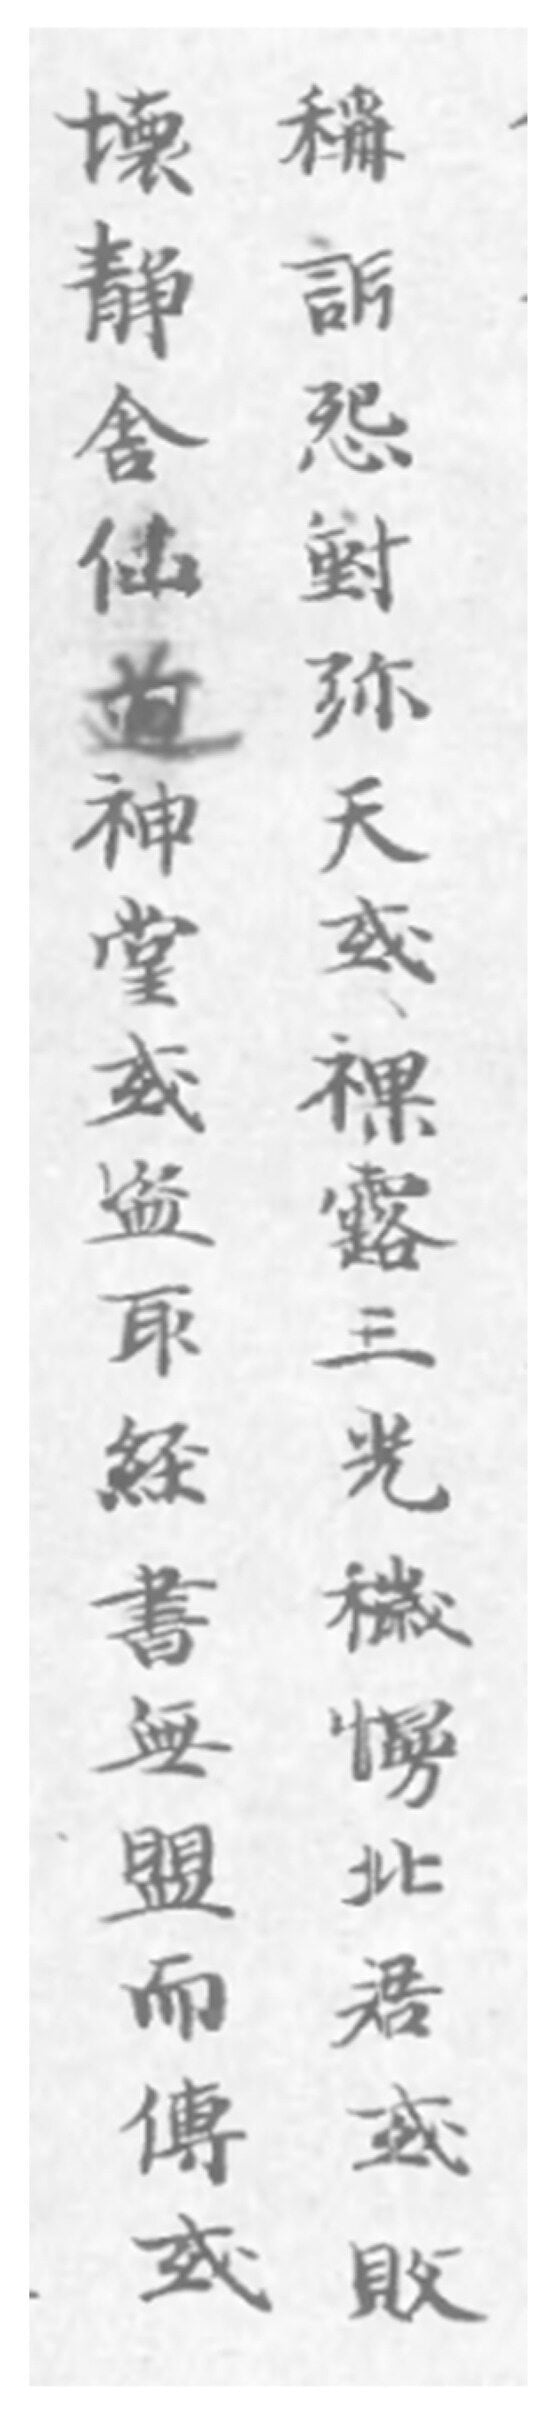 稱訴怨對弥天或裸露三光穢慢北君或敗
壞靜舍仙道神堂或盜取經書無盟而傳或